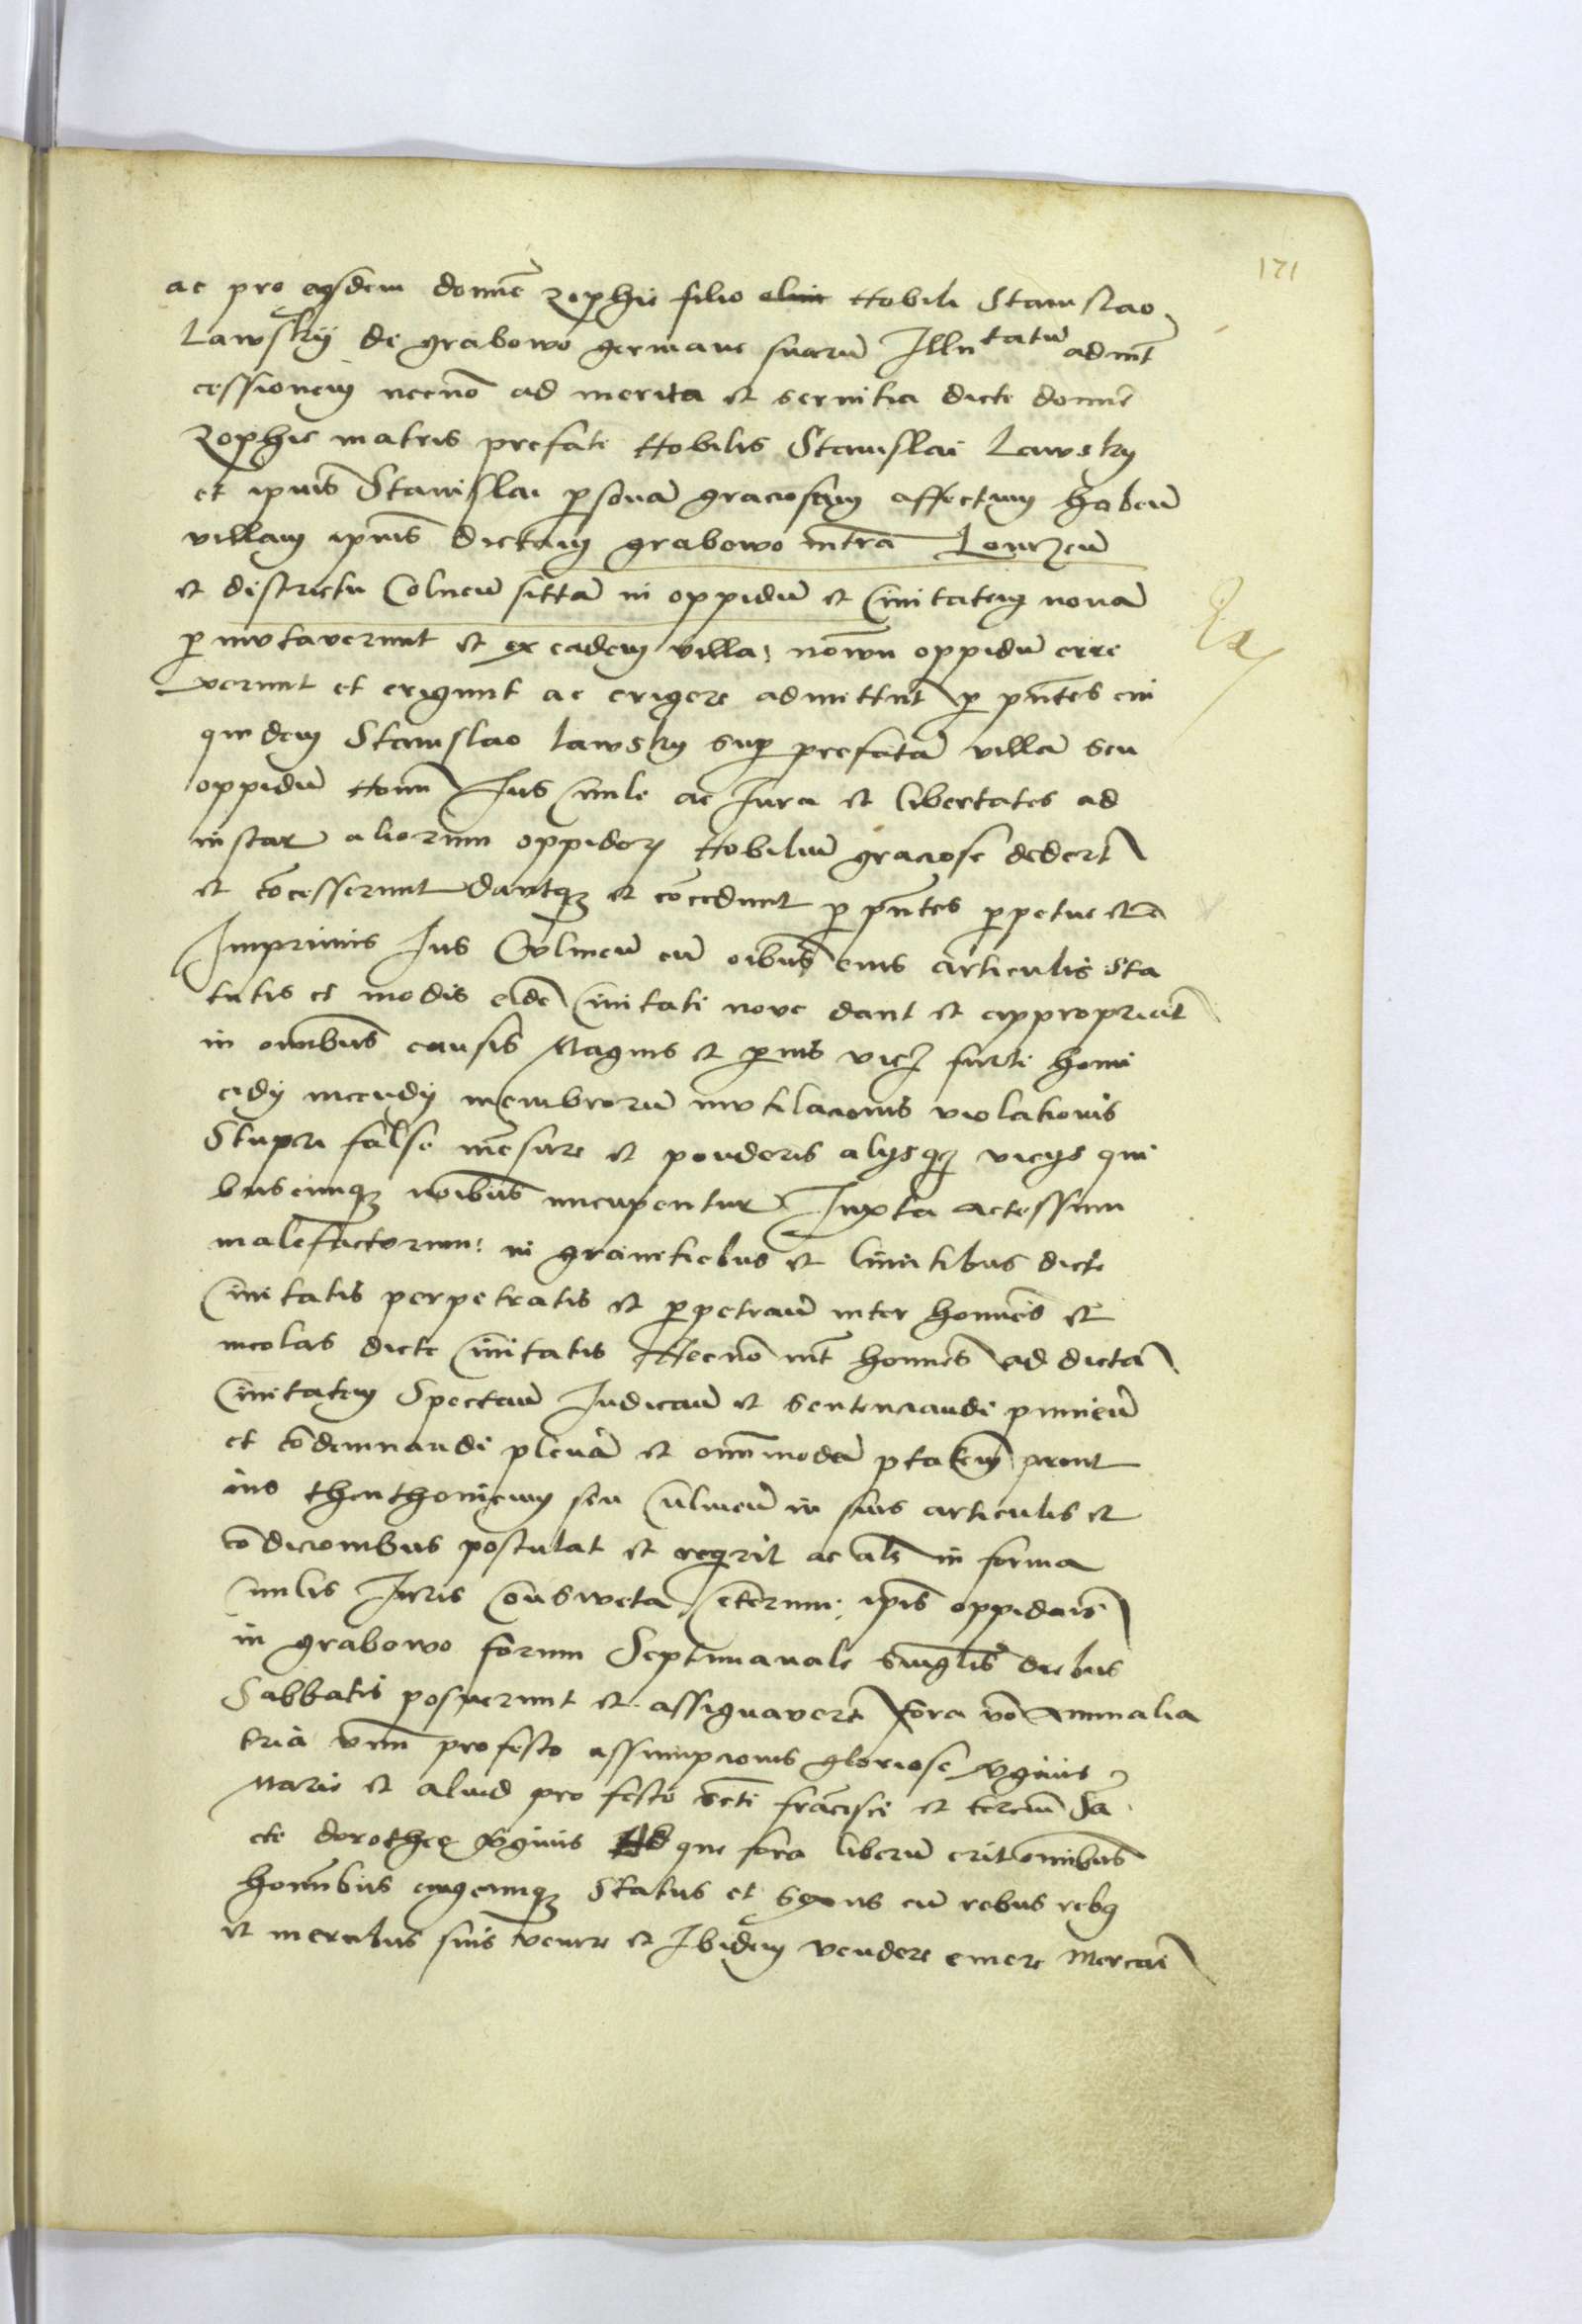 171
ac pro eiusdem domine Zophie filio olim Nobili Stanislao
Lawsky de grabowo germane suarum Illu tatum ad int
cessionem necno ad merita et servitia dicte domine
Zophie matris prefate Nobilis Stanislai Lawsky
et ipius Stanislai psona graciosam affectum haben
villam ipius dictam grabowo in tra Lomzen
et districtu Colnen sitta in oppidu et Civitatem nova
p mutaverunt et ex eadem villa novum oppidu erre
xerunt et erigunt ac erigere admittunt p pntes eui
quidem Stanislao Lawsky sup prefata villa seu
oppidu Novum Jus Civile ac Jura et libertates ad
instar aliorum oppidor Nobiliu graciose dedert
et concesserunt dantq et concedunt p pntes ppetue
Imprimis Jus Colmen cu oibus eius articulis sta
tutis et modis eide Civitati nove dant et appropriat
in omnibus causis Magnis et pvis vicz furti homi
cidy incendy membroru mutilacionis violationis
Stupri false mesure et ponderis alysqq vicys qui
buscumq noibus nncupentur Juxta actessum
malefactorum in granitiebus et limitibus dicte
Civitatis perpetratis et ppetran inter homines et
incolas dicte Civitatis Necno int homines ad dicta
Civitatem Spectan Judican et sentenciandi punien
et condemnandi plena et omnimoda ptatem prout
ius theuthonicum seu Culmen in suis articulis et
condicionibus postulat et reqrit ac als in forma
Civilis Juris Consweta Ceterum ipis oppidais
in grabowo forum Septimanale singlis diebus
Sabbatis posuerunt et assignavert fora vo Annualia
tria vnu pro festo assumpcionis gloriose virginis
Marie et aliud pro festo scti francisci et terciu Sa
cte dorothee virginis Ad que fora liberu erit omnibus
hominibus cuiuscumq Status et sexus cu rebus rebq
et mercibus suis venire et Ibidem vendere emere Mercari